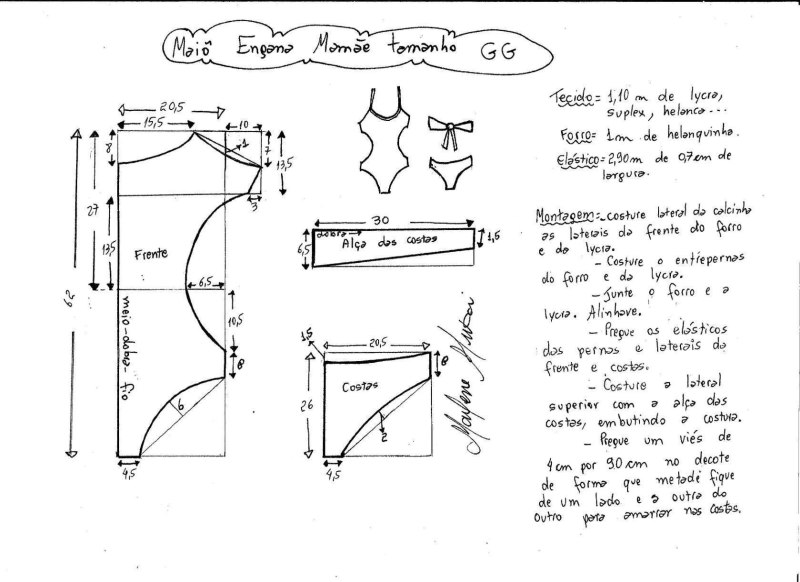 Maiô Engana Mamãe tamanho GG
20,5
15,5
10
8
1
7
13,5
3
27
13,5
Frente
6,5
62
meio-dobra-fio
10,5
8
6
4,5
30
dobra
Alça das costas
6,5
1,5
1,5
20,5
8
Costas
26
2
4,5
Marlene Mukai
Tecido= 1,10 m de lycra,
suplex, helanca...
Forro= 1m de helanquinha.
Elástico= 2,90m de 0,7cm de
largura.
Montagem:- costure lateral da calcinha
as laterais da frente do forro
e da lycra.
- Costure o entrepernas
do forro e da lycra.
- Junte o forro e a
lycra. Alinhave.
- Pregue os elásticos
das pernas e laterais da
frente e costas.
- Costure a lateral
superior com a alça das
costas, embutindo a costura.
- Pregue um viés de
4cm por 90cm no decote
de forma que metade fique
de um lado e a outra do
outro para amarrar nas costas.